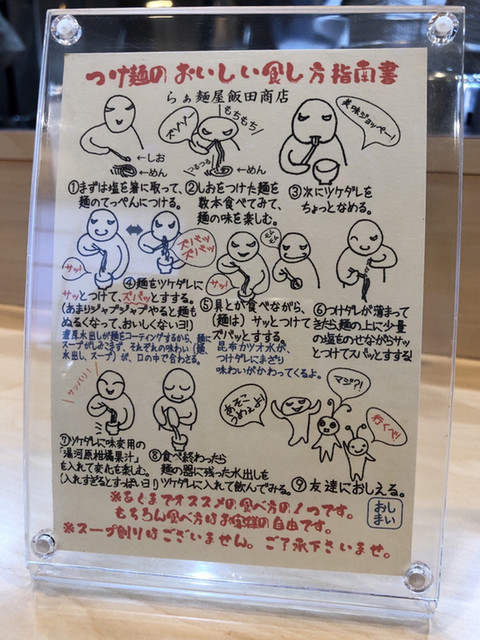 つけ麺のおいしい食し方指南書
らぁ麺屋飯田商店
ズゾゾー
もちもち!
美味ジョッペー!
←しお
←めん
つるつる
←めん
①まずは塩を箸に取って、
麺のてっぺんにつける。
②しおをつけた麺を
数本食べてみて、
麺の味を楽しむ。
③次にツケダレを
ちょっとなめる。
サッ!
ズパッ
ズパッ
④麺をツケダレに
サッとつけて、ズパッとすする。
(あまりジャブジャブやると麺も
ぬるくなって、おいしくないヨ!)
濃厚水出しが麺をコーティングするから、麺に
スープがしみこまず、それぞれの味わい(麺、
水出し、スープ)が、口の中で合わさる。
サッ!
モグモグ
⑤具とか食べながら、
(麺は)サッとつけて
ズパッとすする。
昆布カツオ水が、
つけダレにまざり
味わいがかわってくるよ。
⑥つけダレが薄まって
きたら麺の上に少量
の塩をのせながらサッ
とつけてズパッとすする!
サッパリ!
⑦ツケダレに味変用の
「湯河原柑橘果汁」
を入れて変化を楽しむ。
(入れすぎるとすっぱいヨ!)
⑧食べ終わったら
麺の器に残った水出しを
ツケダレに入れて飲んでみる。
あそこ
うめぇよ!
マジか?!
行くべ!
⑨友達におしえる。
※あくまでオススメの食べ方の1つです。
もちろん食べ方はお客様の自由です。
おし
まい
※スープ割りはございません。ご了承下さいませ。